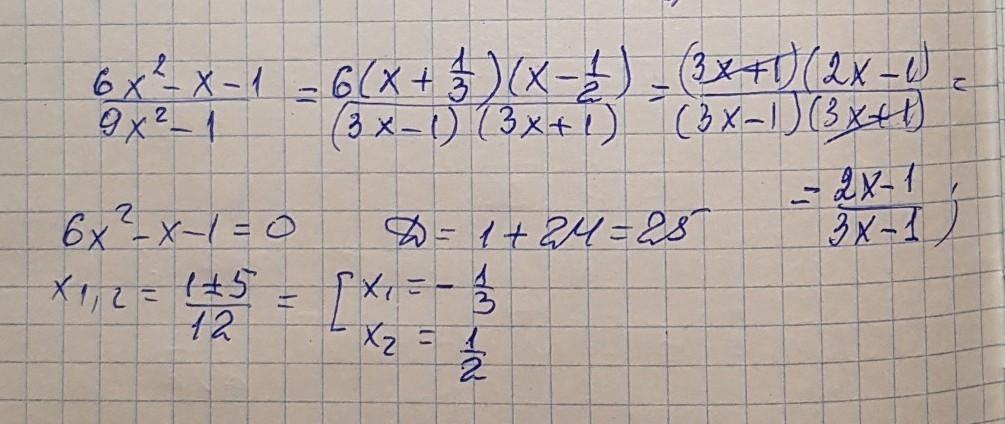 (6x² - x - 1)/(9x² - 1) = 6(x + 1/3)(x - 1/2)/((3x - 1)(3x + 1)) = (3x + 1)(2x - 1)/((3x - 1)(3x + 1)) =
= (2x - 1)/(3x - 1);
6x² - x - 1 = 0 D = 1 + 24 = 25
x₁,₂ = (1 ± 5)/12 = [ x₁ = - 1/3
x₂ = 1/2